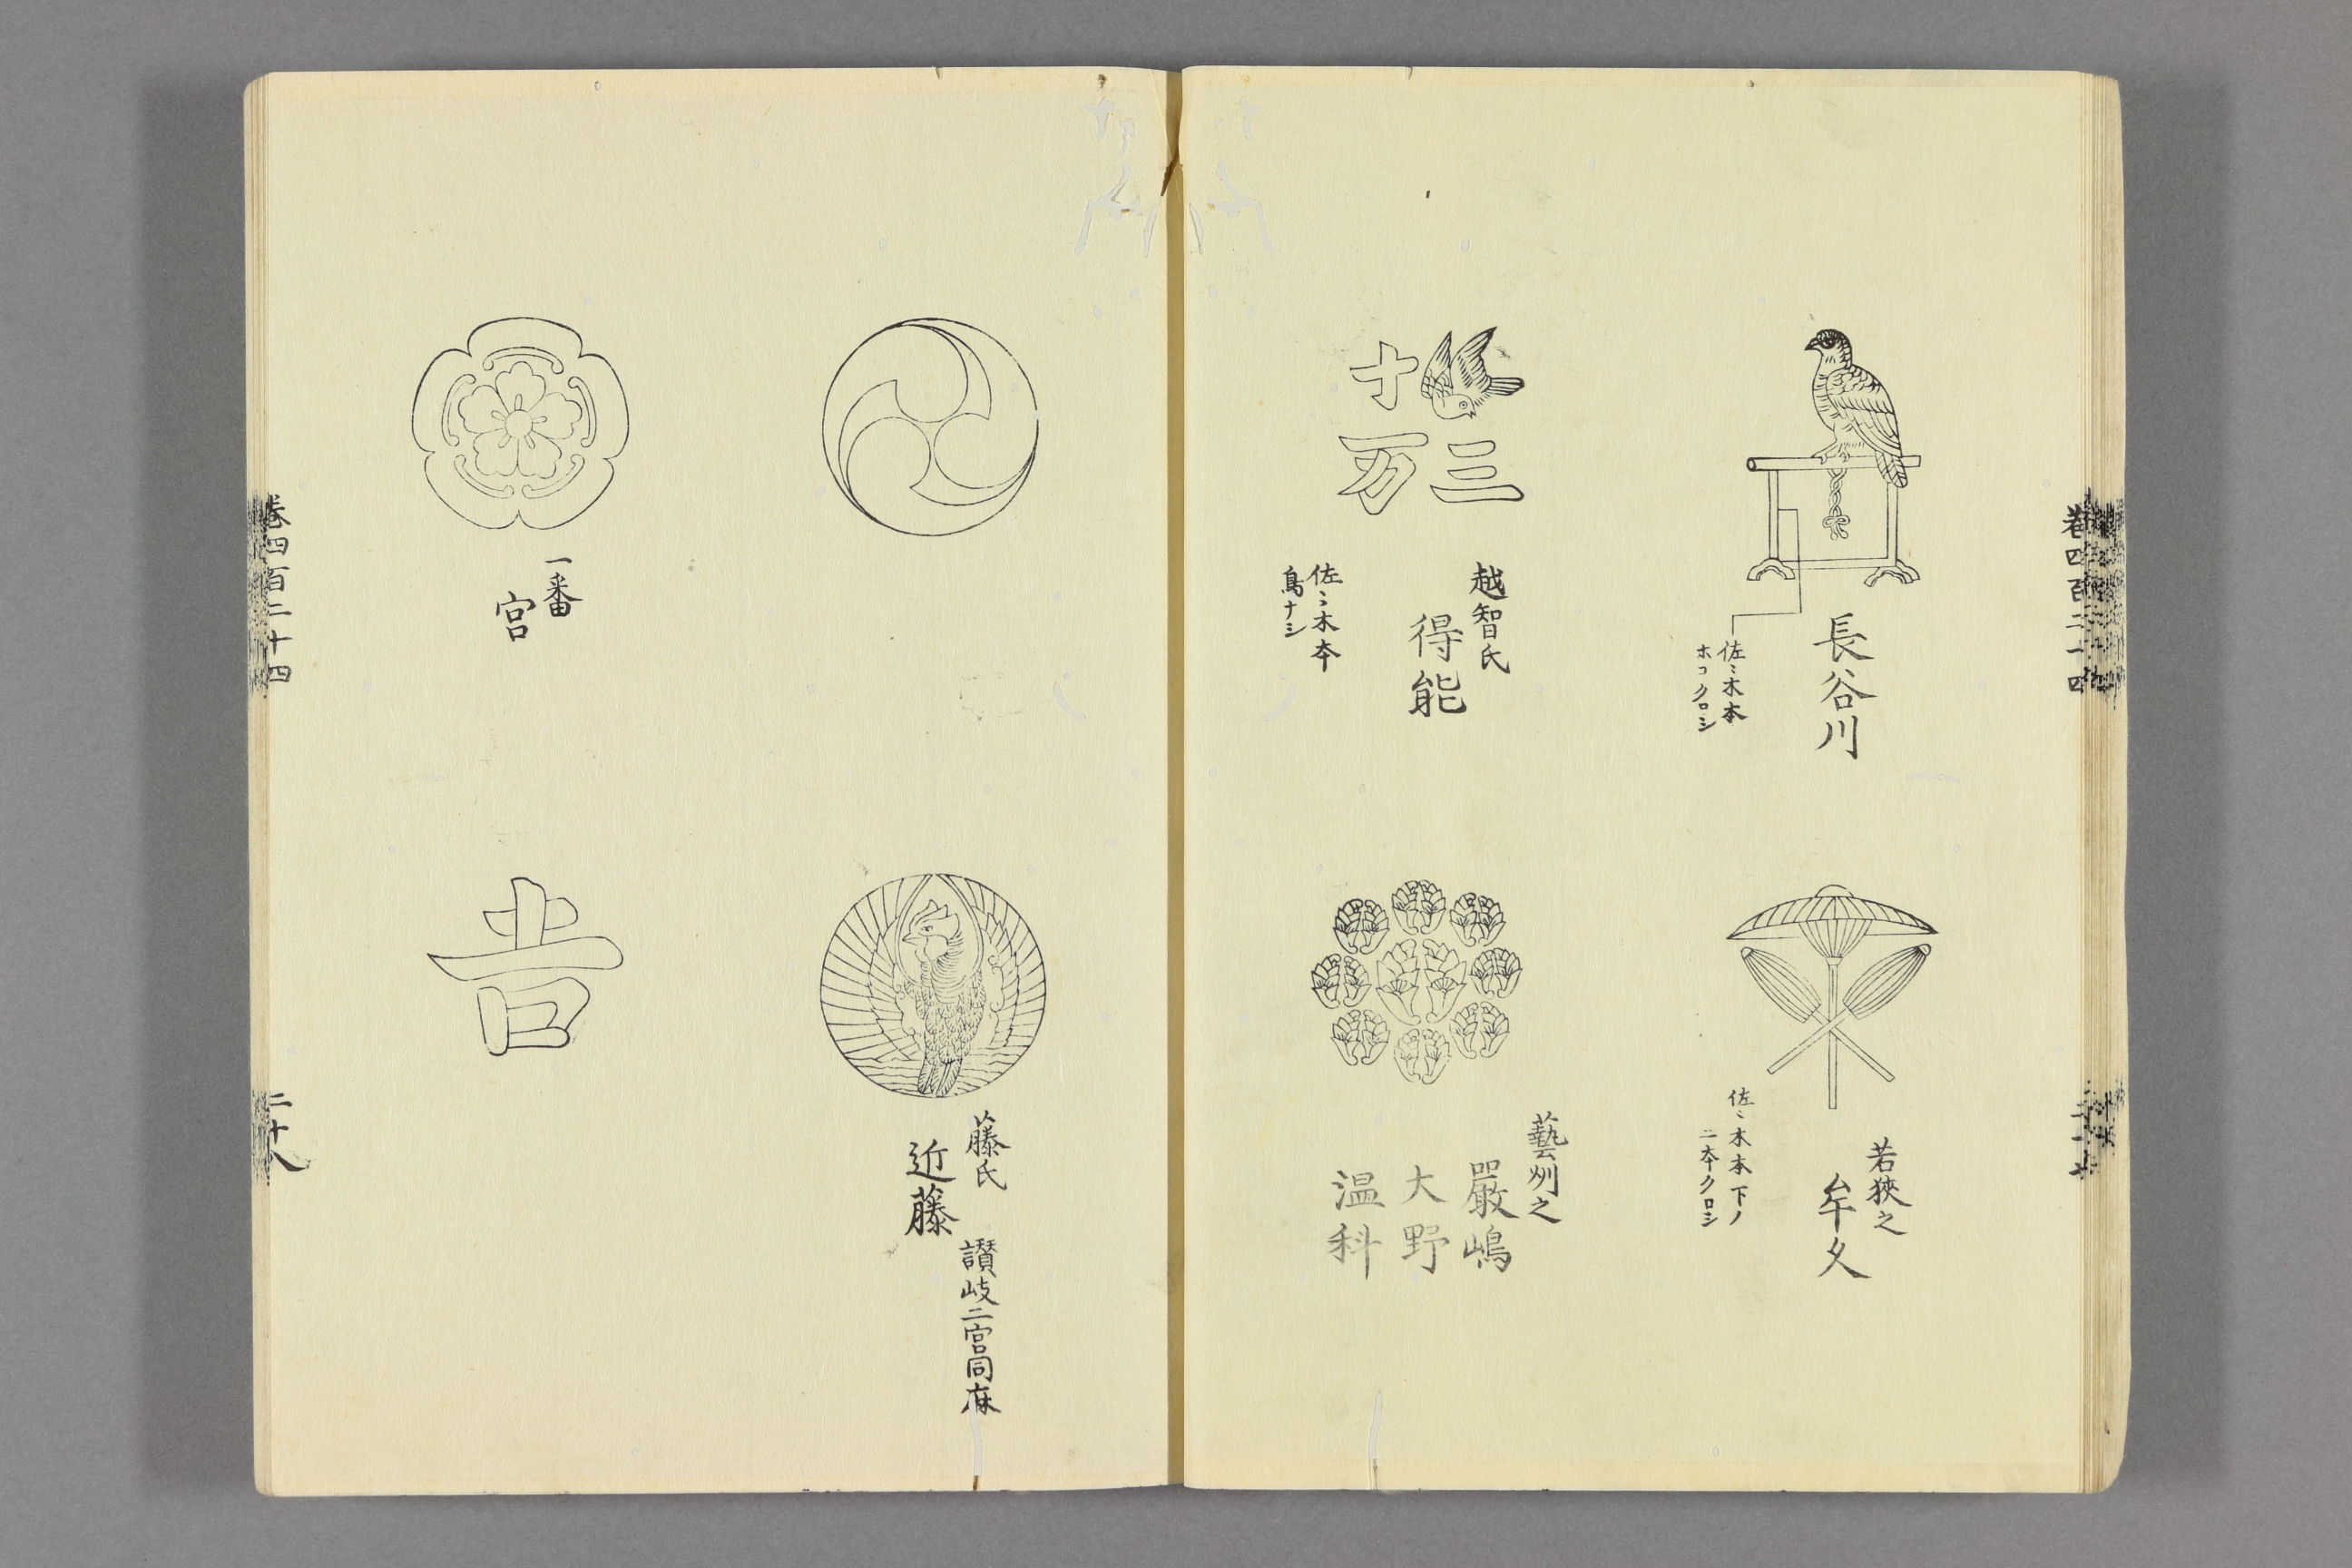 長谷川
佐〻木本
ホコクロシ
若狹之
牟久
佐〻木本下ノ
二本クロシ
三
十万
越智氏
得能
佐〻木本
鳥ナシ
藝州之
嚴嶋
大野
温科
藤氏
近藤
讃岐二宮同麻
一番
宮
吉
卷四百二十四
二十八